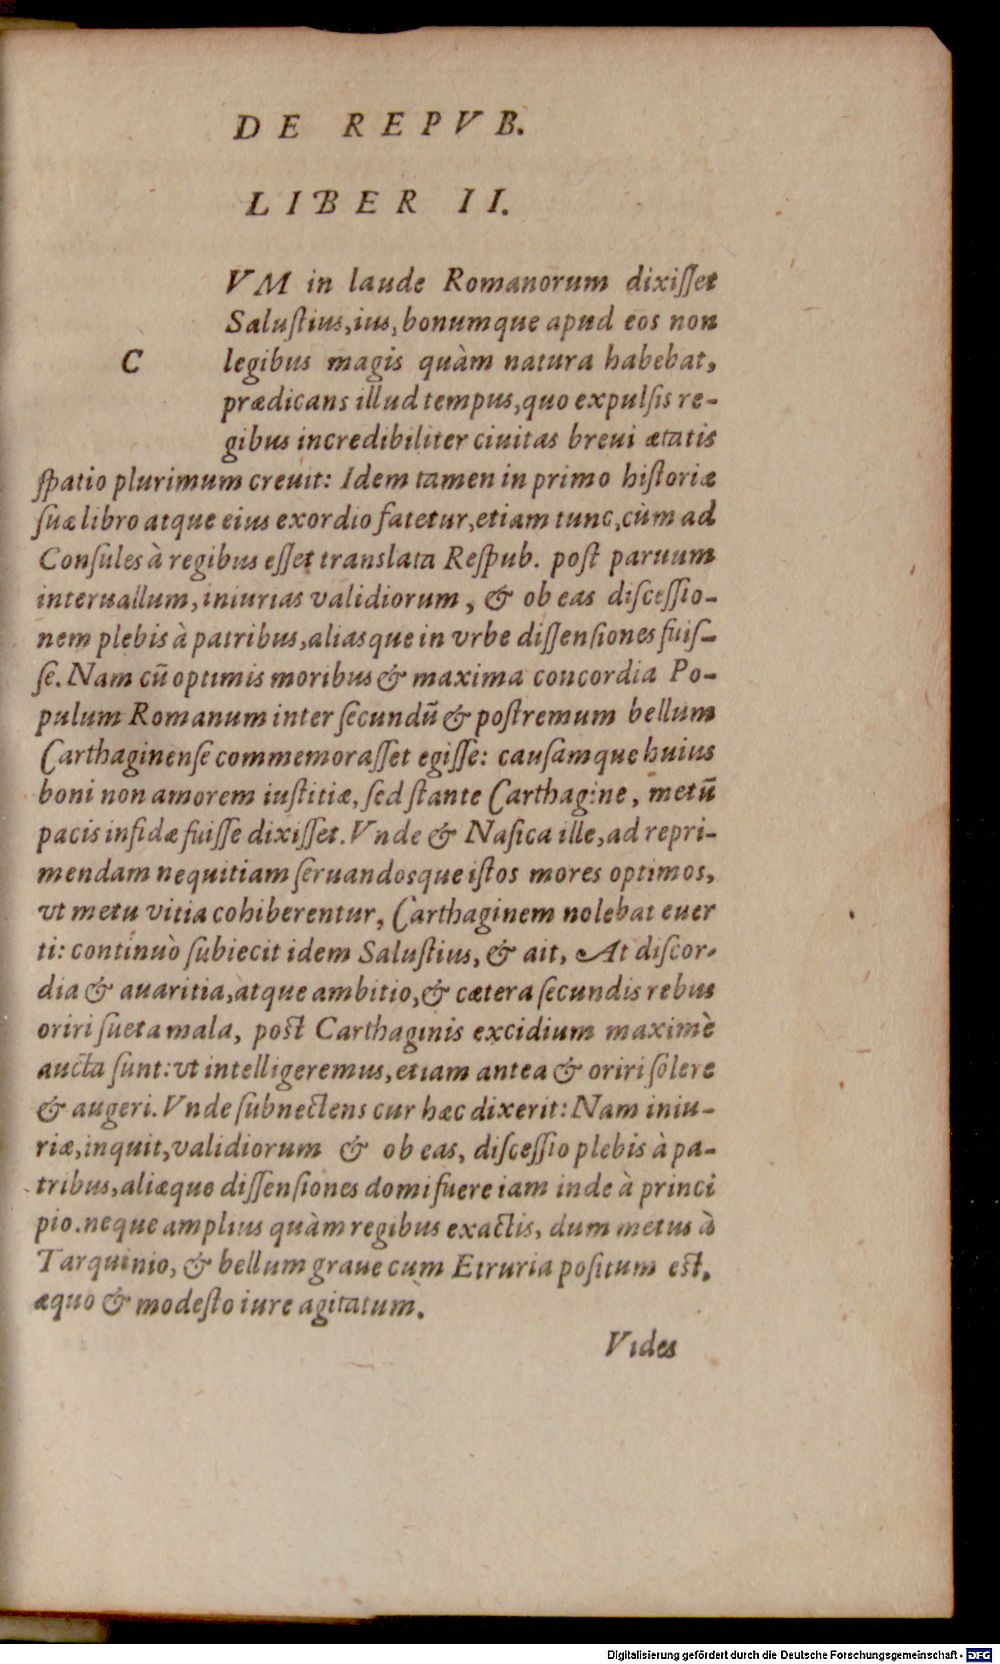 DE REPVB.
LIBER II.
C VM in laude Romanorum dixiſſet
Saluſtius, ius, bonumque apud eos non
legibus magis quàm natura habebat,
prædicans illud tempus, quo expulſis re-
gibus incredibiliter ciuitas breui ætatis
ſpatio plurimum creuit: Idem tamen in primo hiſtoriæ
ſuæ libro atque eius exordio fatetur, etiam tunc, cùm ad
Conſules à regibus eſſet translata Reſpub. poſt paruum
interuallum, iniurias validiorum, & ob eas diſceſſio-
nem plebis à patribus, aliasque in vrbe diſſenſiones fuiſ-
ſe. Nam cū optimis moribus & maxima concordia Po-
pulum Romanum inter ſecundū & poſtremum bellum
Carthaginenſe commemoraſſet egiſſe: cauſamque huius
boni non amorem iuſtitiæ, ſed ſtante Carthagine, metū
pacis infidæ fuiſſe dixiſſet. Vnde & Naſica ille, ad repri-
mendam nequitiam ſeruandosque iſtos mores optimos,
vt metu vitia cohiberentur, Carthaginem nolebat euer
ti: continuò ſubiecit idem Saluſtius, & ait, At diſcor-
dia & auaritia, atque ambitio, & cætera ſecundis rebus
oriri ſueta mala, poſt Carthaginis excidium maximè
aucta ſunt: vt intelligeremus, etiam antea & oriri ſolere
& augeri. Vnde ſubnectens cur hæc dixerit: Nam iniu-
riæ, inquit, validiorum & ob eas, diſceſſio plebis à pa-
tribus, aliæque diſſenſiones domi fuere iam inde à princi
pio. neque amplius quàm regibus exactis, dum metus à
Tarquinio, & bellum graue cum Etruria poſitum eſt,
æquo & modeſto iure agitatum.
Vides
Digitalisierung gefördert durch die Deutsche Forschungsgemeinschaft - DFG